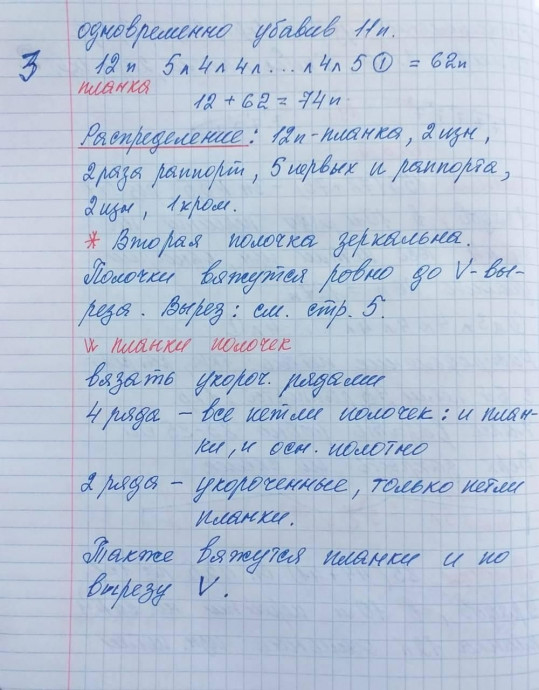 одновременно убавив 11п.
3 12п 5 л 4 л 4 л ... л 4 л 5 ① = 62п
планка
12 + 62 = 74п
Распределение: 12п-планка, 2изн,
2 раза раппорт, 5 первых п раппорта,
2изн, 1кром.
* Вторая полочка зеркальна.
Полочки вяжутся ровно до V-вы-
реза. Вырез: см. стр. 5.
планки полочек
вязать укороч. рядами
4 ряда - все петли полочек: и план-
ки, и осн. полотно
2 ряда - укороченные, только петли
планки.
Также вяжутся планки и по
вырезу V.